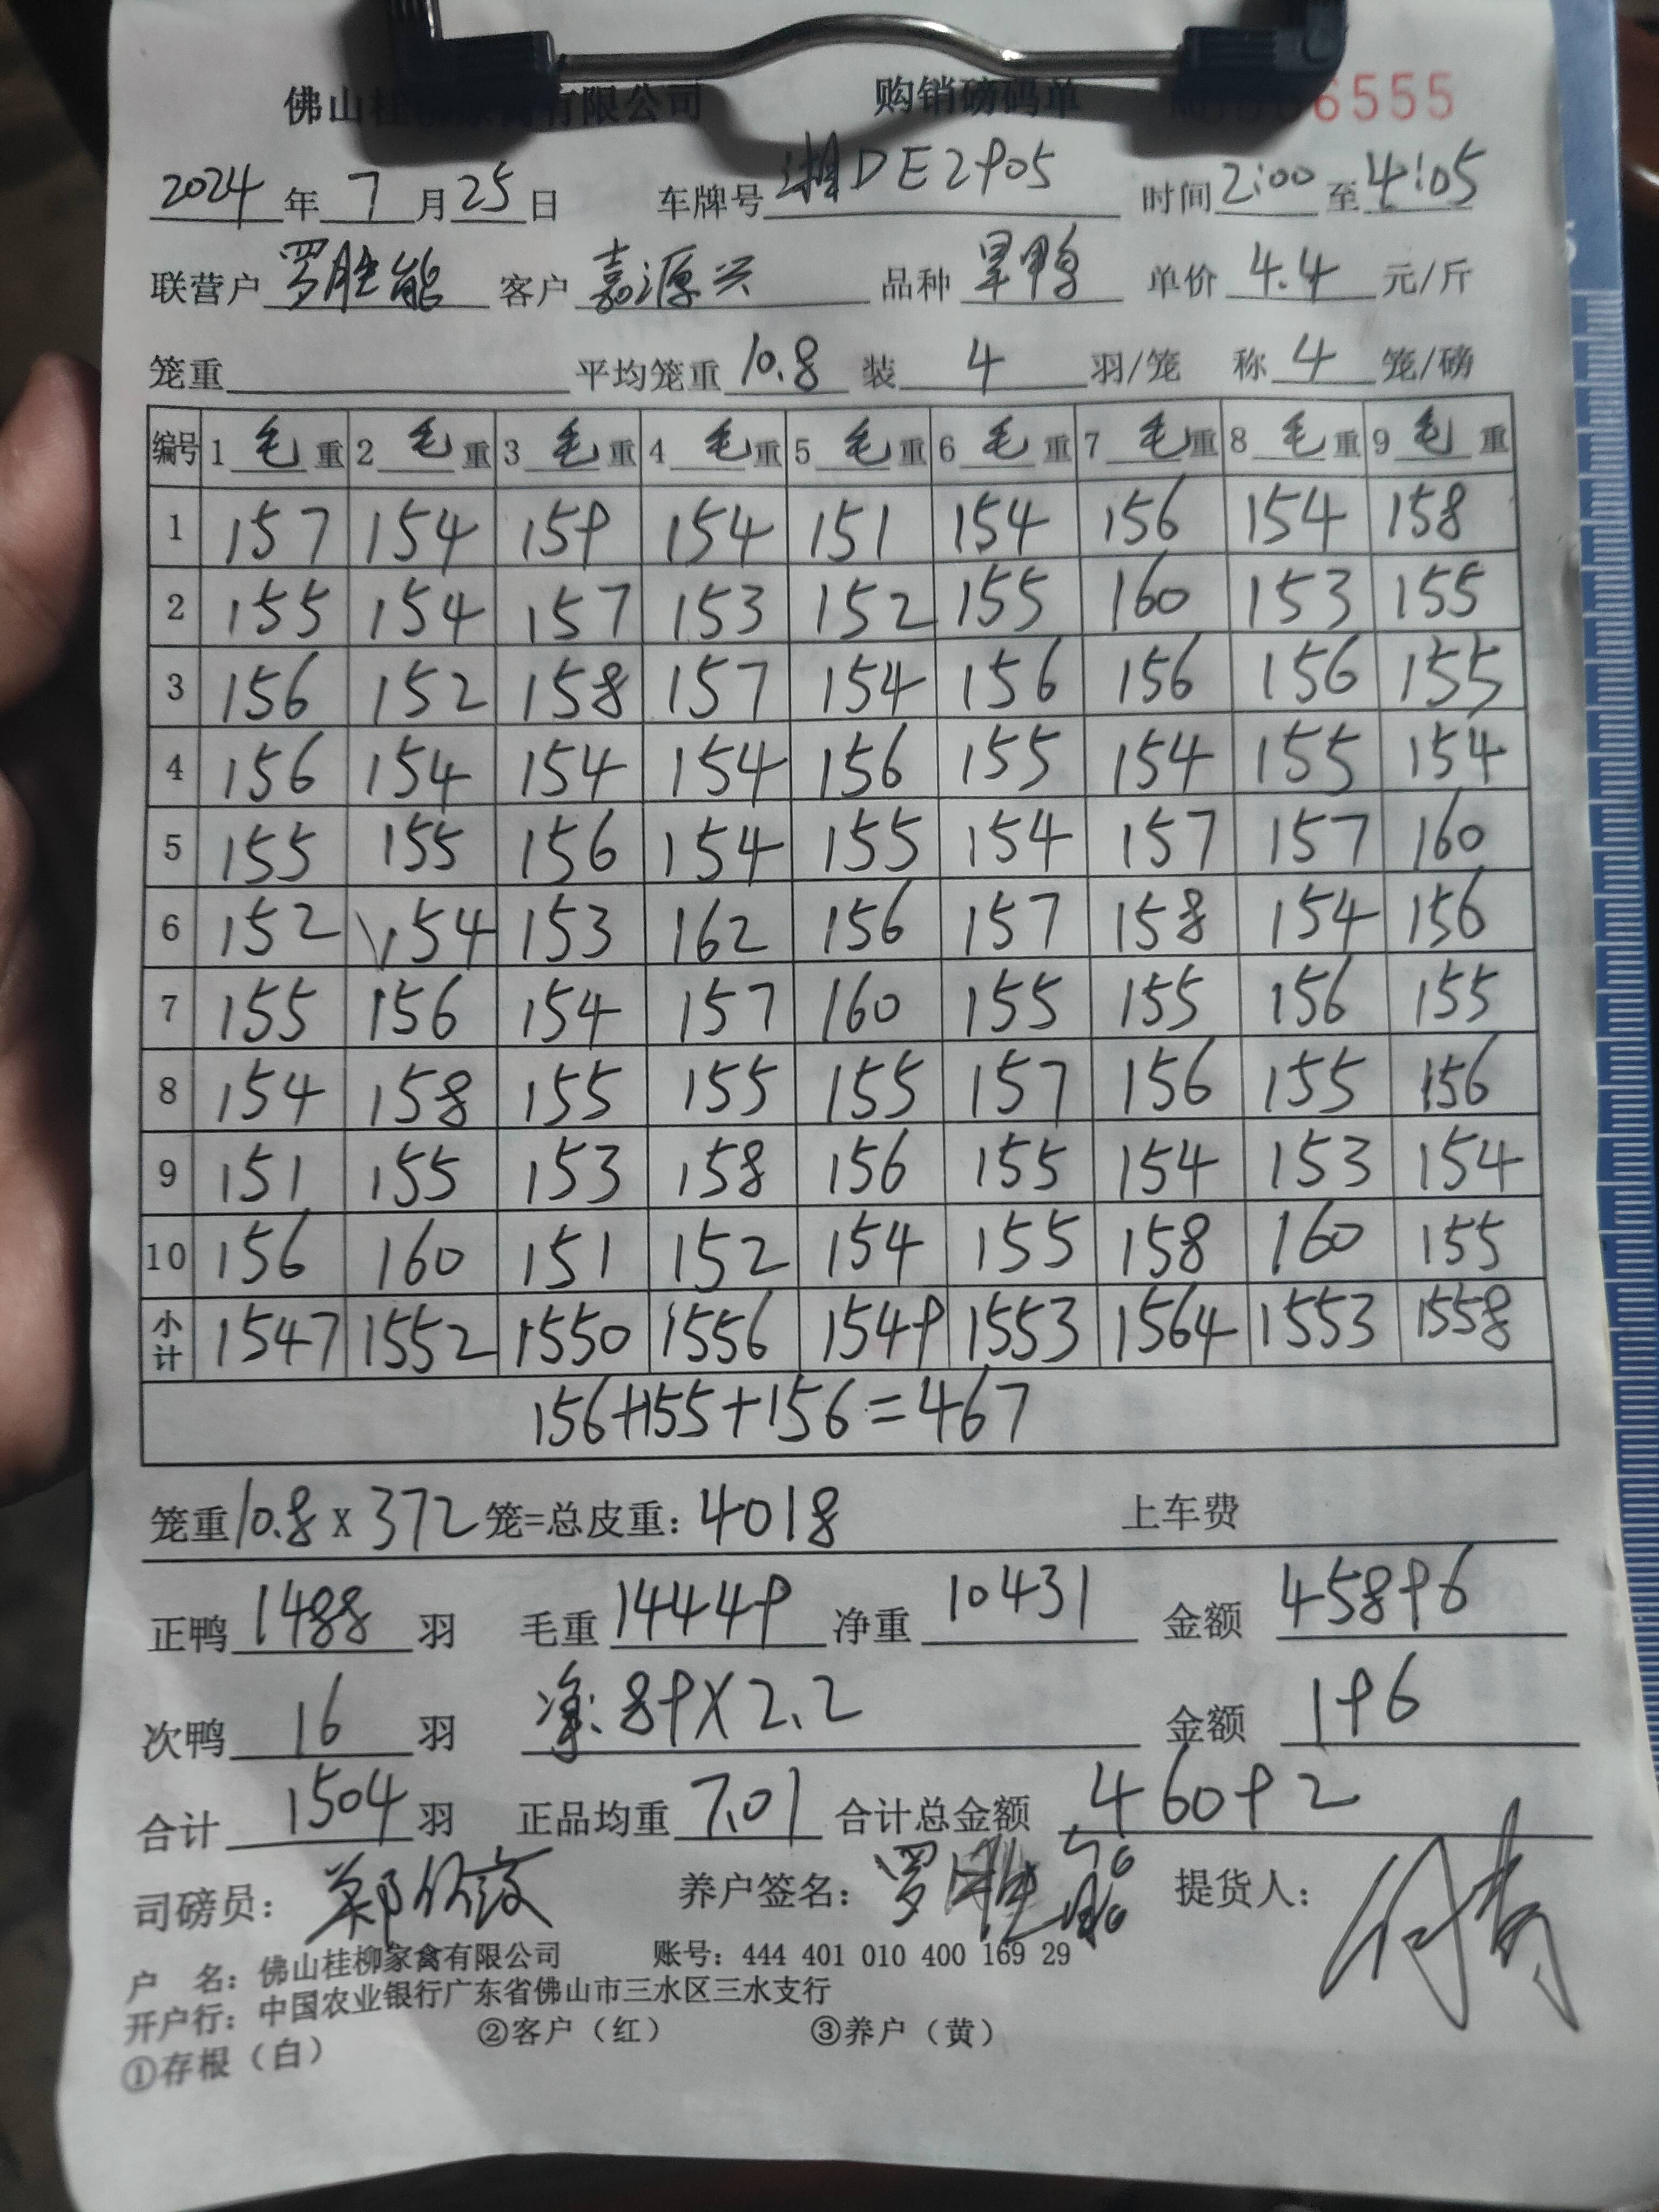 佛山桂柳家禽有限公司 购销磅码单 6555
2024年7月25日 车牌号 湘DE2905 时间2:00至4:05
联营户 罗胜能 客户 嘉源兴 品种 旱鸭 单价 4.4 元/斤
笼重 平均笼重 10.8 装 4 羽/笼 称 4 笼/磅
编号 1 毛重 2 毛重 3 毛重 4 毛重 5 毛重 6 毛重 7 毛重 8 毛重 9 毛重
1 157 154 159 154 151 154 156 154 158
2 155 154 157 153 152 155 160 153 155
3 156 152 158 157 154 156 156 156 155
4 156 154 154 154 156 155 154 155 154
5 155 155 156 154 155 154 157 157 160
6 152 154 153 162 156 157 158 154 156
7 155 156 154 157 160 155 155 156 155
8 154 158 155 155 155 157 156 155 156
9 151 155 153 158 156 155 154 153 154
10 156 160 151 152 154 155 158 160 155
小计 1547 1552 1550 1556 1549 1553 1564 1553 1558
156+155+156=467
笼重10.8x372笼=总皮重:4018 上车费
正鸭 1488 羽 毛重 14449 净重 10431 金额 45896
次鸭 16 羽 净:89X2.2 金额 196
合计 1504 羽 正品均重 7.01 合计总金额 46092
司磅员: 养户签名:罗胜能 提货人:
户 名:佛山桂柳家禽有限公司 账号:444 401 010 400 169 29
开户行:中国农业银行广东省佛山市三水区三水支行
①存根(白) ②客户(红) ③养户(黄)